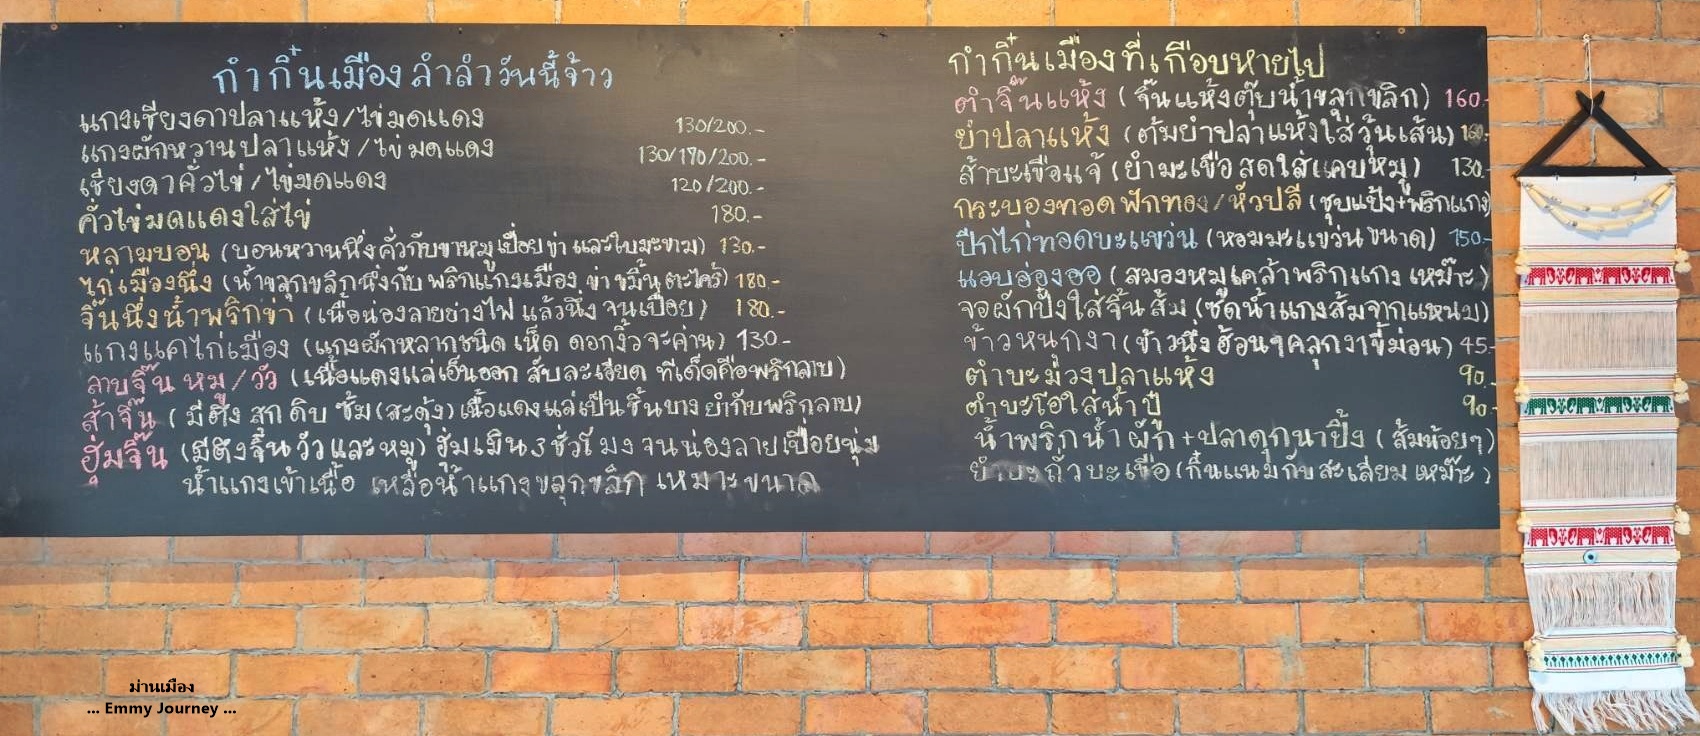 กำกิ๋นเมือง ลำลำวันนี้จ้าว
แกงเชียงดาปลาแห้ง/ไข่มดแดง 130/200.-
แกงผักหวานปลาแห้ง/ไข่มดแดง 130/170/200.-
เชียงดาคั่วไข่/ไข่มดแดง 120/200.-
คั่วไข่มดแดงใส่ไข่ 180.-
หลามบอน (บอนหวานนึ่งคั่วกับขาหมูเปื่อย ข่า และใบมะขาม) 130.-
ไก่เมืองนึ่ง (น้ำขลุกขลิกนึ่งกับ พริกแกงเมือง ข่า ขมิ้น ตะไคร้) 180.-
จิ๊นนึ่งน้ำพริกข่า (เนื้อน่องลายย่างไฟ แล้วนึ่ง จนเปื่อย) 180.-
แกงแคไก่เมือง (แกงผักหลากชนิด เห็ด ดอกงิ้ว จะค่าน) 130.-
ลาบจิ๊น หมู/วัว (เนื้อแดงแล่เอ็นออก สับละเอียด ทีเด็ดคือพริกลาบ)
ส้าจิ๊น (มีตึง สุก ดิบ ซั้ม (สะดุ้ง) เนื้อแดงแล่เป็นชิ้นบาง ยำกับพริกลาบ)
ฮุ่มจิ๊น (มีตึงจิ๊น วัว และหมู) ฮุ่มเมิน 3 ชั่วโมง จนน่องลายเปื่อยนุ่ม
น้ำแกงเข้าเนื้อ เหลือน้ำแกงขลุกขลิก เหมาะขนาด
กำกิ๋นเมืองที่เกือบหายไป
ตำจิ๊นแห้ง (จิ๊นแห้งตุ๊บน้ำขลุกขลิก) 160.-
ยำปลาแห้ง (ต้มยำปลาแห้งใส่วุ้นเส้น) 160.-
ส้าบะเขือแจ้ (ยำมะเขือสดใส่แคบหมู) 130.-
กระบองทอด ฟักทอง/หัวปลี (ชุบแป้ง+พริกแกง)
ปีกไก่ทอดบะแขว่น (หอมมะแขว่นขนาด) 150.-
แอบอ่องออ (สมองหมูเคล้าพริกแกง เหม๊าะ)
จอผักปั๋งใส่จิ๊นส้ม (ซดน้ำแกงส้มจากแหนม)
ข้าวหนุกงา (ข้าวนึ่งฮ้อนๆคลุกงาขี้ม่อน) 45.-
ตำบะม่วงปลาแห้ง 90.-
ตำบะโอใส่น้ำปู๋ 90.-
น้ำพริกน้ำผัก+ปลาดุกนาปิ้ง (ส้มหน้อยๆ)
ยำบะถั่วบะเขือ (กิ๋นแนมกับสะเลียม เหม๊าะ)
ม่านเมือง
... Emmy Journey ...